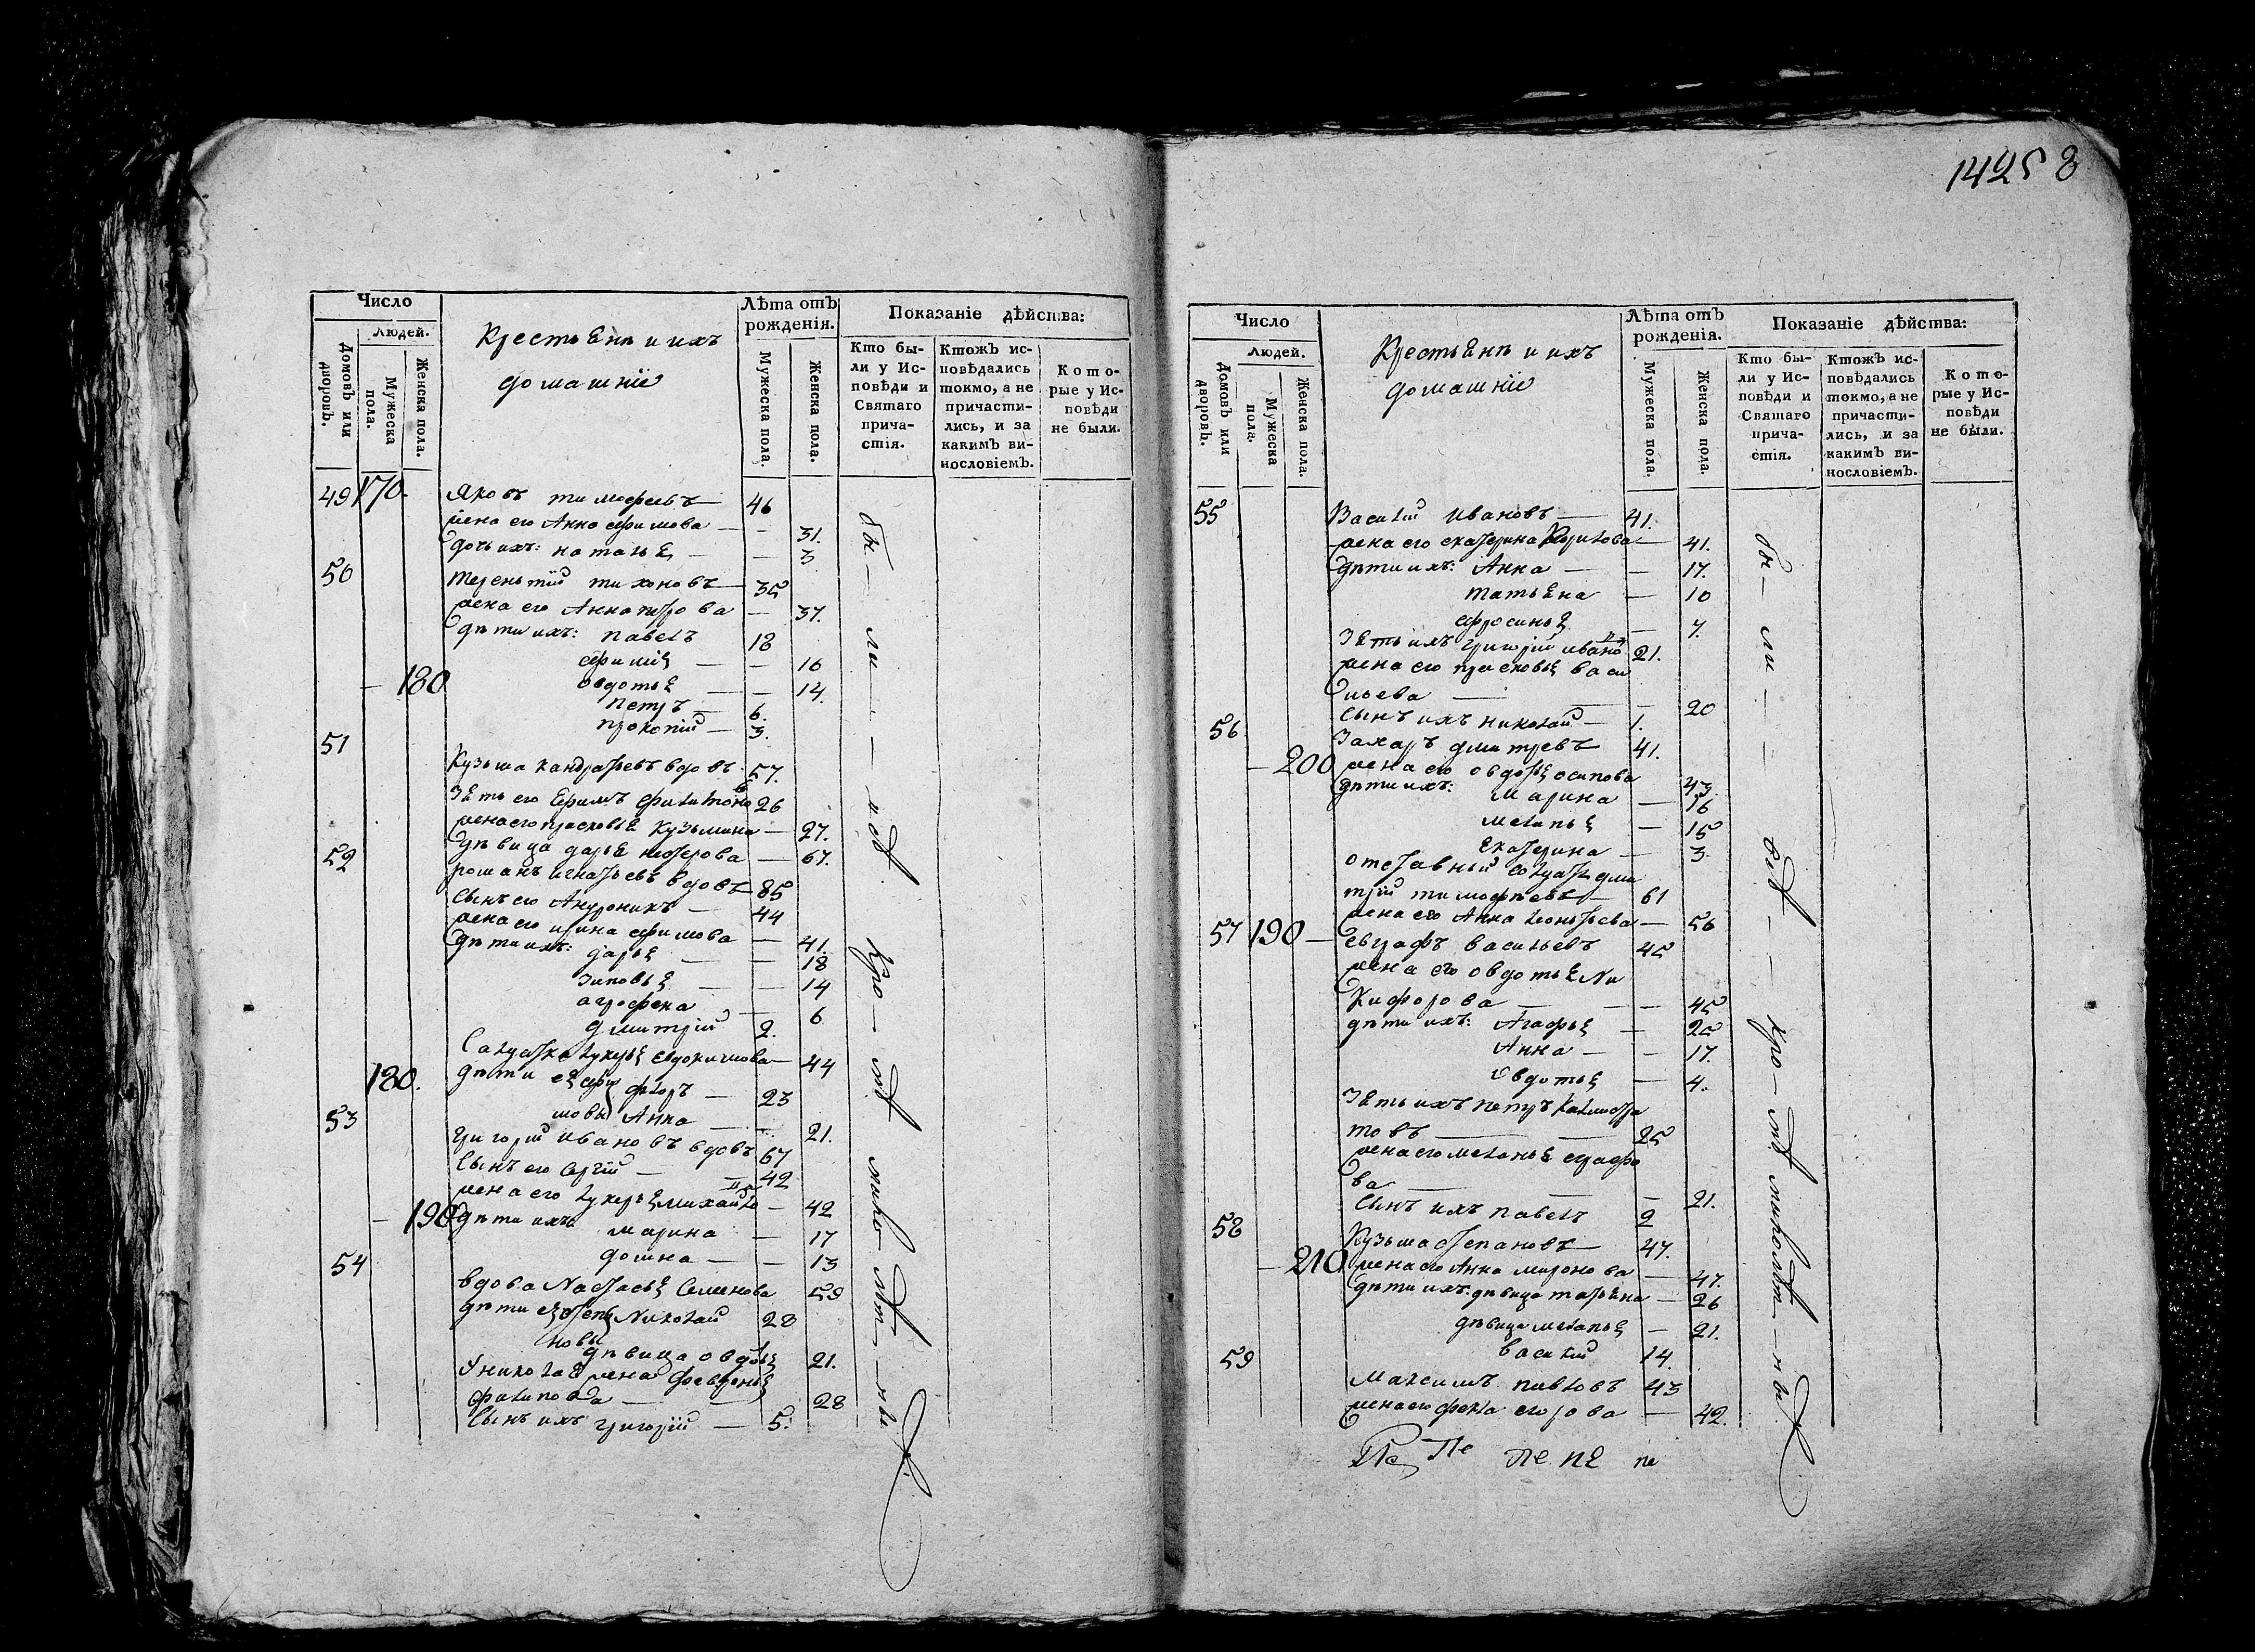 14258
Число
Людей.
Домовъ или дворовъ.
Мужеска пола.
Женска пола.
Крестьяня и ихъ
домашніе
Лѣта отъ рожденія.
Мужеска пола.
Женска пола.
Показаніе дѣйства:
Кто были у Исповѣди и Святаго причастія.
Ктожъ исповѣдались токмо, а не причастились, и за какимъ винословіемъ.
Которые у Исповѣди не были.
49 170. Яковъ тимофеевъ — 46
жена его Анна ефимова — — 31.
дочь ихъ: наталья — — 3
50 терентій тихоновъ — 35
жена его Анна петрова — 37.
дѣти ихъ: павелъ 18
ефимія — — 16
— 180 овдотья — — 14.
петръ — 6.
прокопій — 3.
51 Кузьма кандратьевъ вдовъ 57.
зять его Ефимъ филипоновъ 26
жена его прасковья Кузьмина — 27.
дѣвица дарья нестерова — 67.
52 романъ игнатьевъ вдовъ 85
сынъ его Андроникъ — 44
жена его ирина ефимова — 41.
дѣти ихъ: дарья — — 18
зиновья — — 14
агрофена — 6
дмитрій 2.
Салдатка лукерья евдокимова — 44
180. дѣти ея ефимовы флоръ — 23
Анна — — 21.
53 григорій ивановъ вдовъ 67
сынъ его сергій — 42
жена его лукерья михайло — 42
— 190 дѣти ихъ марина — 17
домна — — 13
54 вдова Настасья Семенова 59
дѣти ея степановы Николай 28
дѣвица овдотья 21.
У николая жена февронья
филипова — — 28
сынъ ихъ григорій — 5.
бы — ли — — — у — кро — мѣ — мало — лѣт — ныхъ
Число
Людей.
Домовъ или дворовъ.
Мужеска пола.
Женска пола.
Крестьяня и ихъ
домашніе
Лѣта отъ рожденія.
Мужеска пола.
Женска пола.
Показаніе дѣйства:
Кто были у Исповѣди и Святаго причастія.
Ктожъ исповѣдались токмо, а не причастились, и за какимъ винословіемъ.
Которые у Исповѣди не были.
55 Василій ивановъ — 41.
жена его екатерина — 41.
дѣти ихъ: Анна — — 17.
татьяна — 10
ефросинья — 7.
зять ихъ григорій ивановъ 21.
жена его прасковья васи
льева — — 20
сынъ ихъ николай — 1.
56 захаръ дмитревъ 41.
— 200 жена его овдотья осипова 43
дѣти ихъ: марина — 16
меланья — 15
екатерина — 3.
отставный солдатъ дми
трій тимофѣевъ — 61
жена его Анна леонтьева — 56
57 190 — евграфъ васильевъ 45
жена его овдотья Ни
кифорова — — 45
дѣти ихъ: Агафья — 25
Анна — — 17.
Овдотья — 4.
зять ихъ петръ калистра
товъ — — 25
жена его меланья еграфо
ва — — — 21.
сынъ ихъ павелъ 2
58 Кузьма степановъ — 47.
— 210 жена его Анна миронова — 47.
дѣти ихъ: дѣвица татьяна — 26
дѣвица меланья — 21.
василій 14.
59 Максимъ павловъ 43
жена его фекла егорова — 42.
Пе Пе пе пе пе